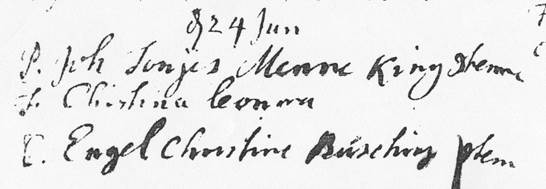 d 24 Jun
P. Joh Tonjes Menne King
F. Christina Leonora
T. Engel Christine Büsching